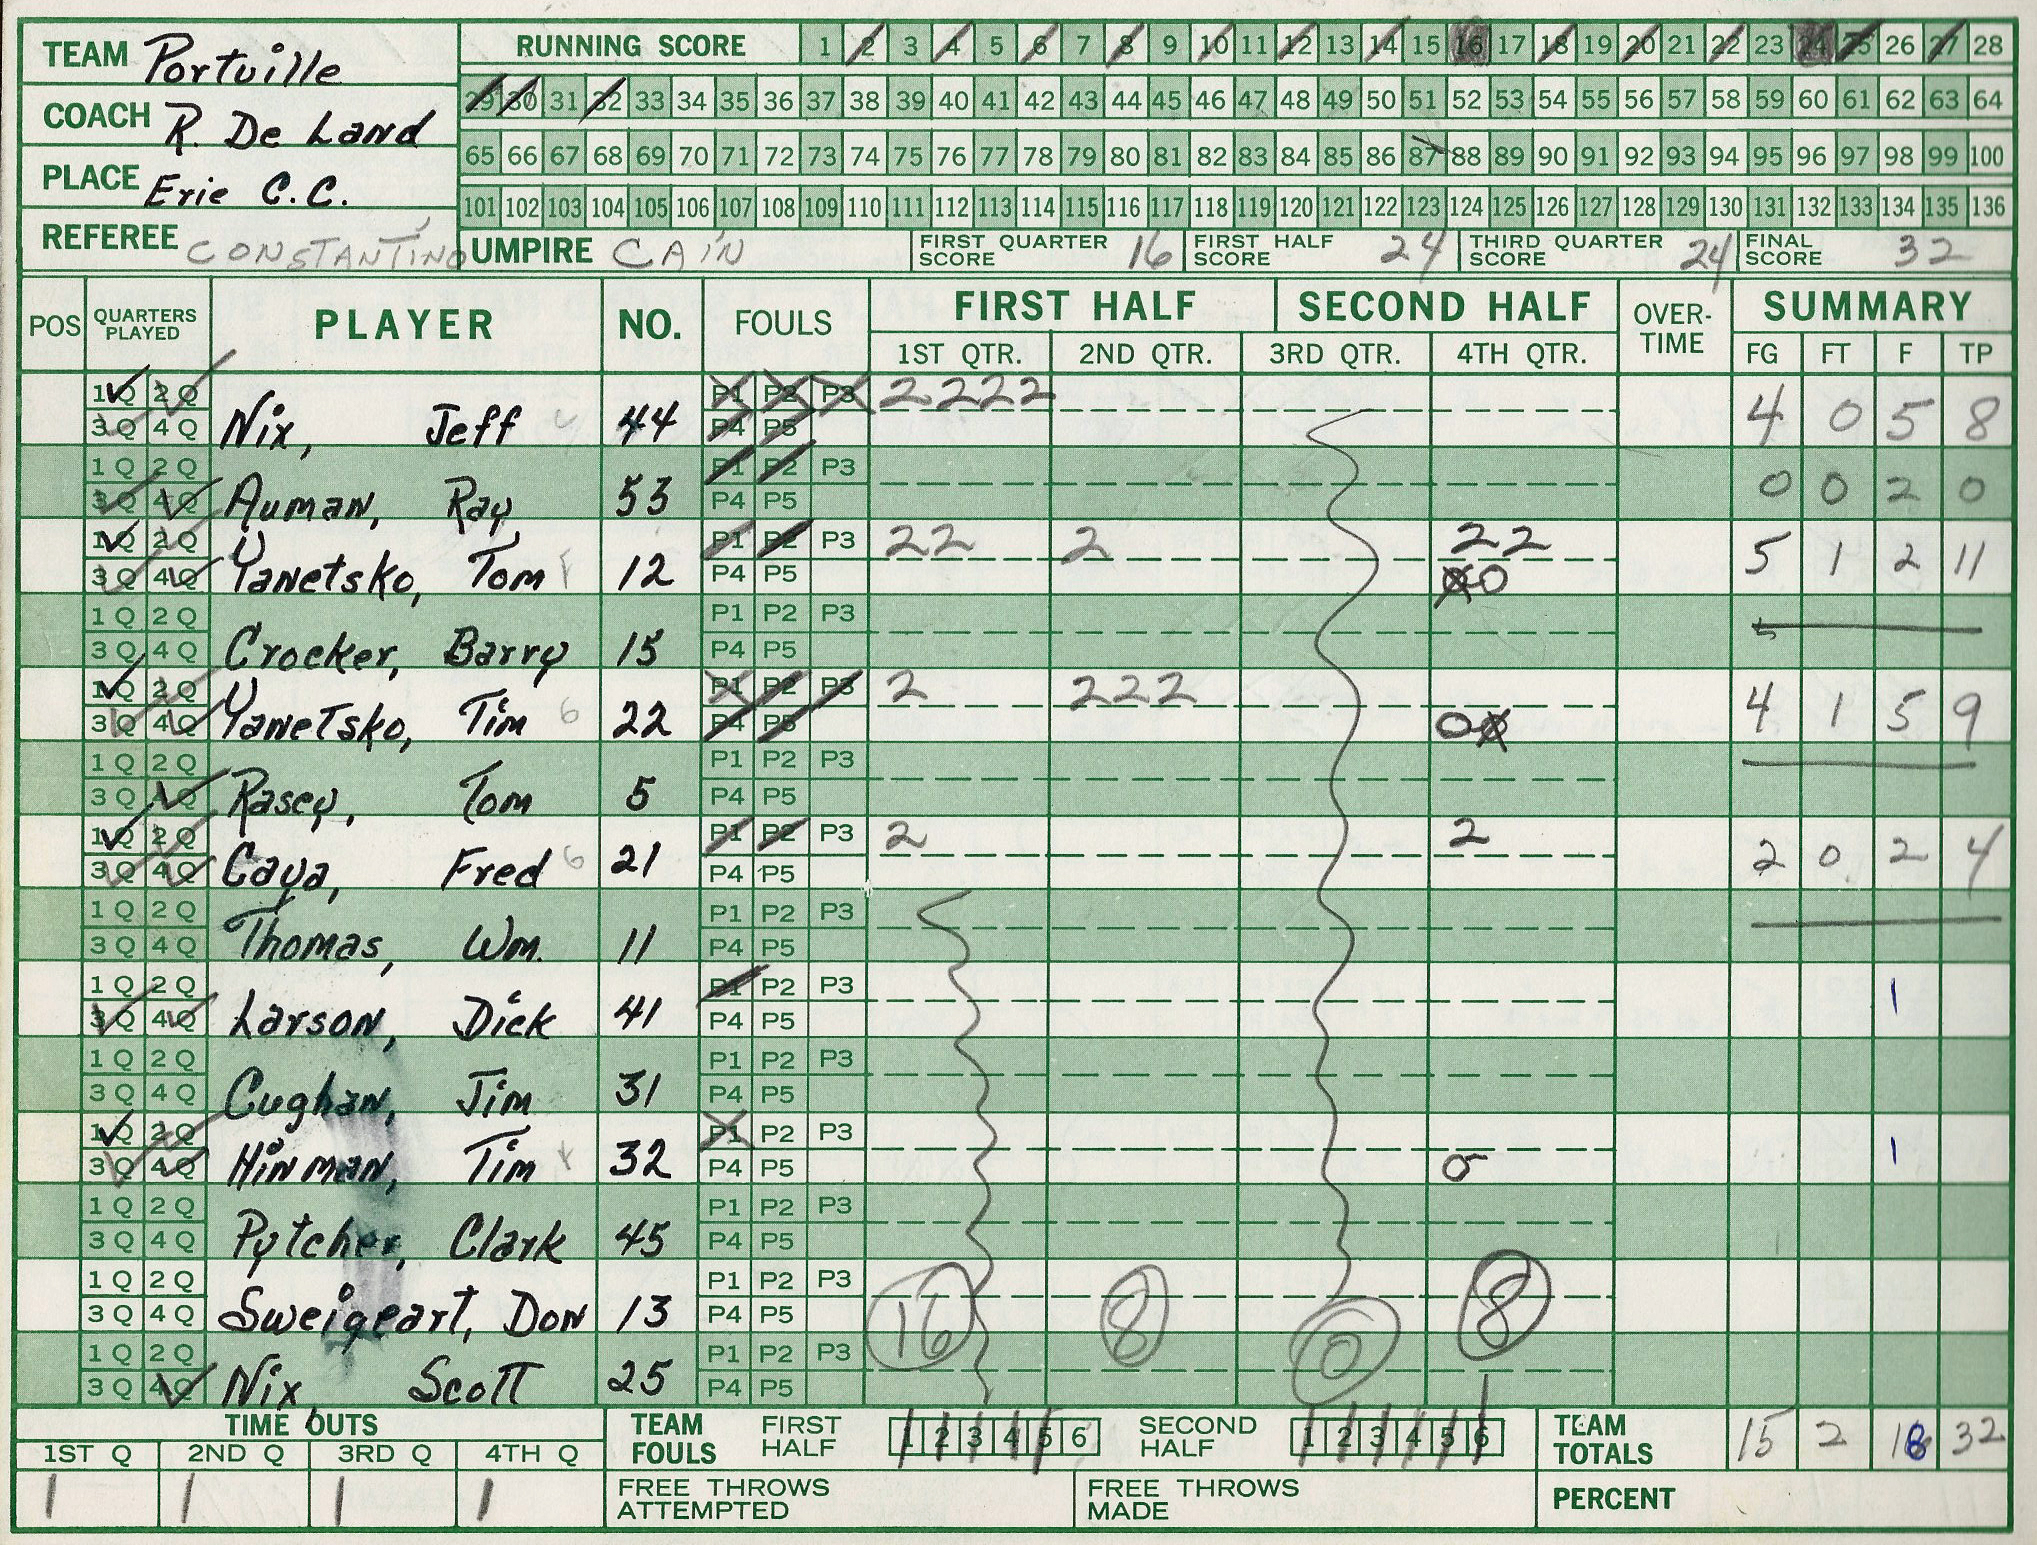 TEAM Portville
COACH R. De Land
PLACE Erie C.C.
REFEREE CONSTANTINO UMPIRE CAIN
RUNNING SCORE 1 2 3 4 5 6 7 8 9 10 11 12 13 14 15 16 17 18 19 20 21 22 23 24 25 26 27 28
29 30 31 32 33 34 35 36 37 38 39 40 41 42 43 44 45 46 47 48 49 50 51 52 53 54 55 56 57 58 59 60 61 62 63 64
65 66 67 68 69 70 71 72 73 74 75 76 77 78 79 80 81 82 83 84 85 86 87 88 89 90 91 92 93 94 95 96 97 98 99 100
101 102 103 104 105 106 107 108 109 110 111 112 113 114 115 116 117 118 119 120 121 122 123 124 125 126 127 128 129 130 131 132 133 134 135 136
FIRST QUARTER SCORE 16 FIRST HALF SCORE 24 THIRD QUARTER SCORE 24 FINAL SCORE 32
POS QUARTERS PLAYED PLAYER NO. FOULS FIRST HALF SECOND HALF OVER-TIME SUMMARY
1ST QTR. 2ND QTR. 3RD QTR. 4TH QTR. FG FT F TP
1Q 2Q P1 P2 P3 2222
3Q 4Q Nix, Jeff 44 P4 P5 4 0 5 8
1Q 2Q P1 P2 P3
3Q 4Q Auman, Ray 53 P4 P5 0 0 2 0
1Q 2Q P1 P2 P3 22 2 22
3Q 4Q Yanetsko, Tom 12 P4 P5 00 5 1 2 11
1Q 2Q P1 P2 P3
3Q 4Q Crocker, Barry 15 P4 P5
1Q 2Q P1 P2 P3 2 222
3Q 4Q Yanetsko, Tim 6 22 P4 P5 00 4 1 5 9
1Q 2Q P1 P2 P3
3Q 4Q Rasey, Tom 5 P4 P5
1Q 2Q P1 P2 P3 2 2
3Q 4Q Caya, Fred 6 21 P4 P5 2 0 2 4
1Q 2Q P1 P2 P3
3Q 4Q Thomas, Wm. 11 P4 P5
1Q 2Q P1 P2 P3 1
3Q 4Q Larson, Dick 41 P4 P5
1Q 2Q P1 P2 P3
3Q 4Q Cughan, Jim 31 P4 P5
1Q 2Q P1 P2 P3 1
3Q 4Q Hinman, Tim 32 P4 P5 0
1Q 2Q P1 P2 P3
3Q 4Q Pytcher, Clark 45 P4 P5
1Q 2Q P1 P2 P3
3Q 4Q Sweigeart, Don 13 P4 P5 16 8 0 8
1Q 2Q P1 P2 P3
3Q 4Q Nix Scott 25 P4 P5
TIME OUTS TEAM FOULS FIRST HALF 1 2 3 4 5 6 SECOND HALF 1 2 3 4 5 6 TEAM TOTALS 15 2 18 32
1ST Q 2ND Q 3RD Q 4TH Q
1 1 1 1 FREE THROWS ATTEMPTED FREE THROWS MADE PERCENT